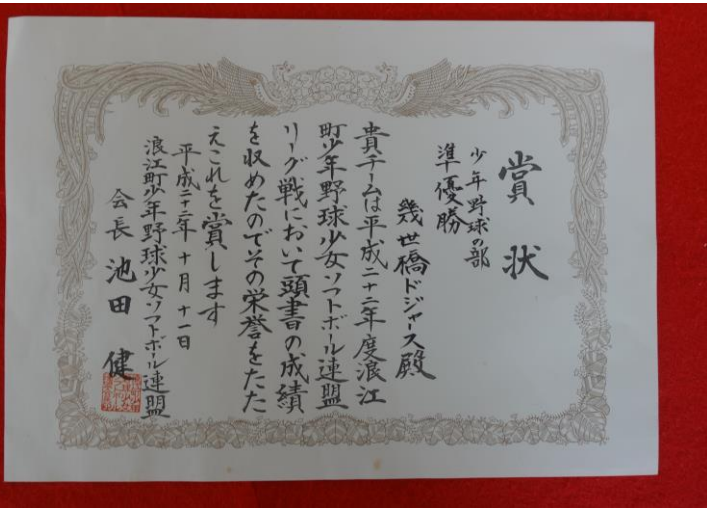 賞状
少年野球の部
準優勝
幾世橋ドジャース殿
貴チームは平成二十二年度浪江
町少年野球少女ソフトボール連盟
リーグ戦において頭書の成績
を収めたのでその栄誉をたた
えこれを賞します
平成二十二年十月十一日
浪江町少年野球少女ソフトボール連盟
会長池田健